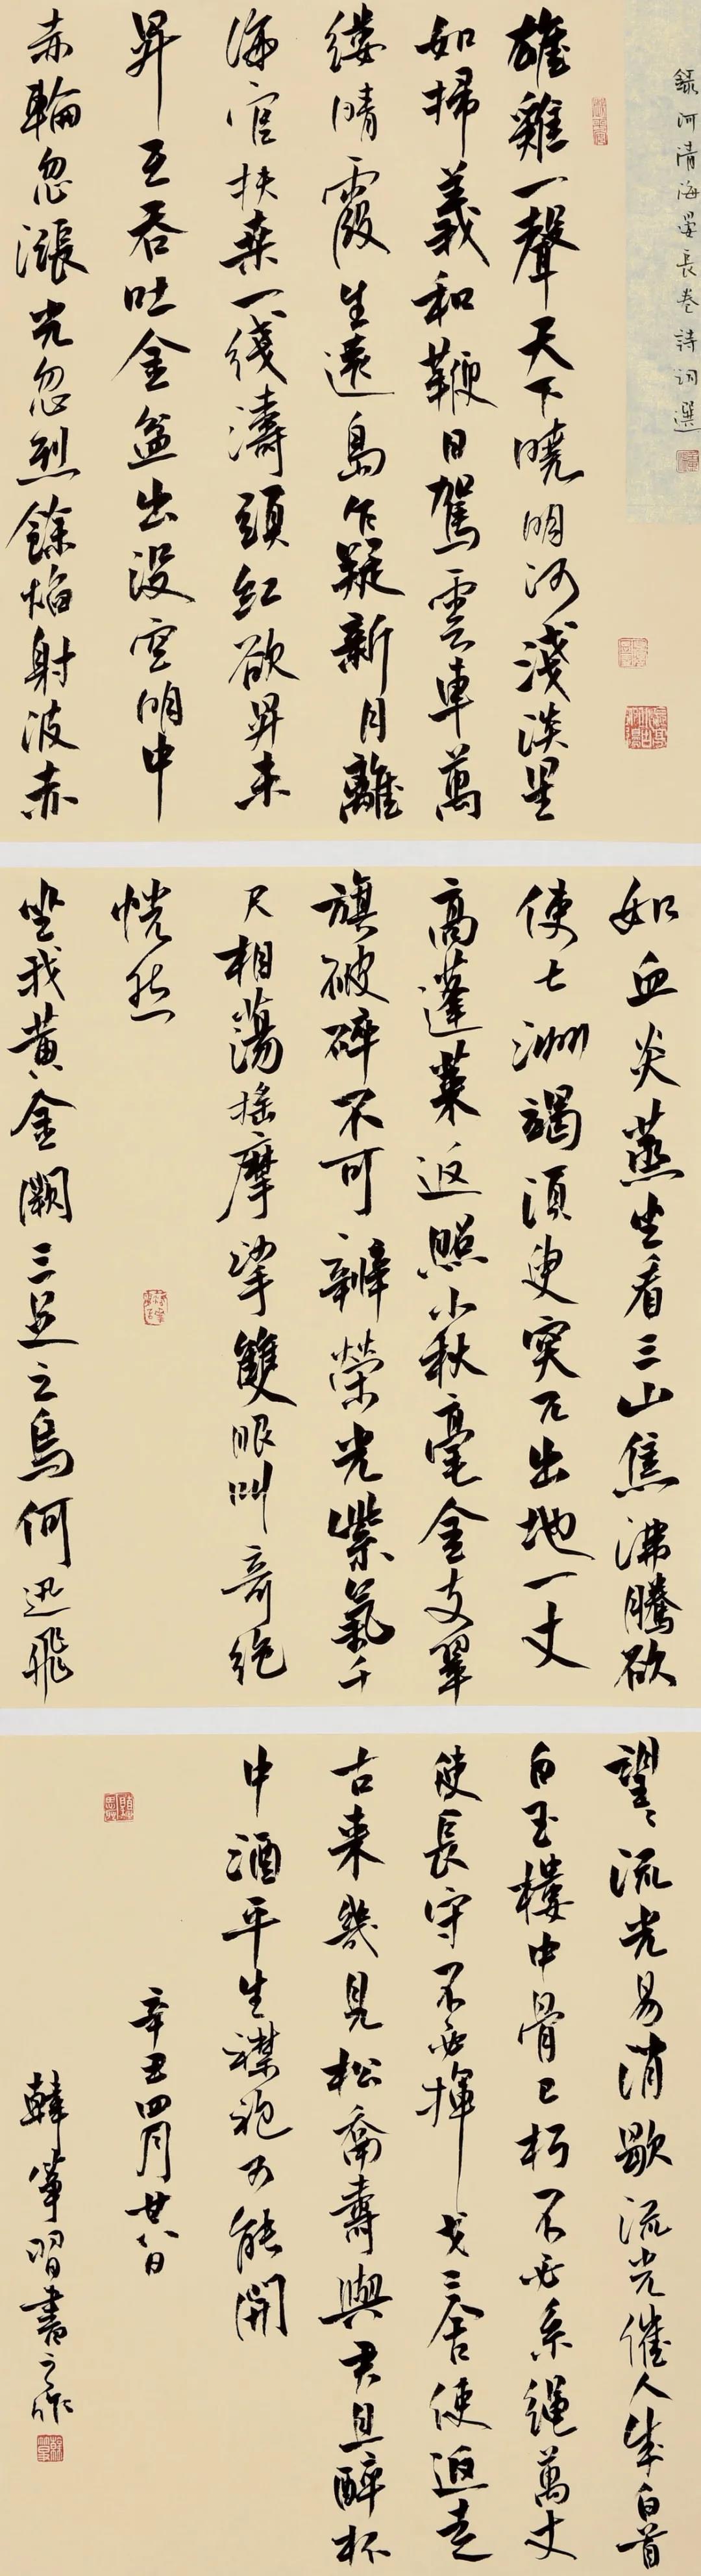 錄河清海晏長卷詩詞選
雄雞一聲天下曉明河淺淡星
如掃羲和鞭日駕雲車萬
縷晴霞生遠島乍疑新月離
海宮扶桒一綫濤頭紅欲昇未
昇互吞吐金盆出没空明中
赤輪忽漲光忽烈餘焰射波赤
如血炎蒸坐看三山焦沸騰欲
使七洲竭須臾突兀出地一丈
高蓬萊返照小秋毫金支翠
旗破碎不可辨榮光紫氣千
尺相蕩摇摩挲雙眼叫奇絶
恍然
坐我黄金闕三足之烏何迅飛
望望流光易消歇流光催人成白首
白玉樓中骨已朽不必系繩萬丈
使長守不必揮戈三舍使返走
古来幾見松喬壽與君且醉杯
中酒平生襟袍乃能開
辛丑四月廿八日
韓筆習書之作